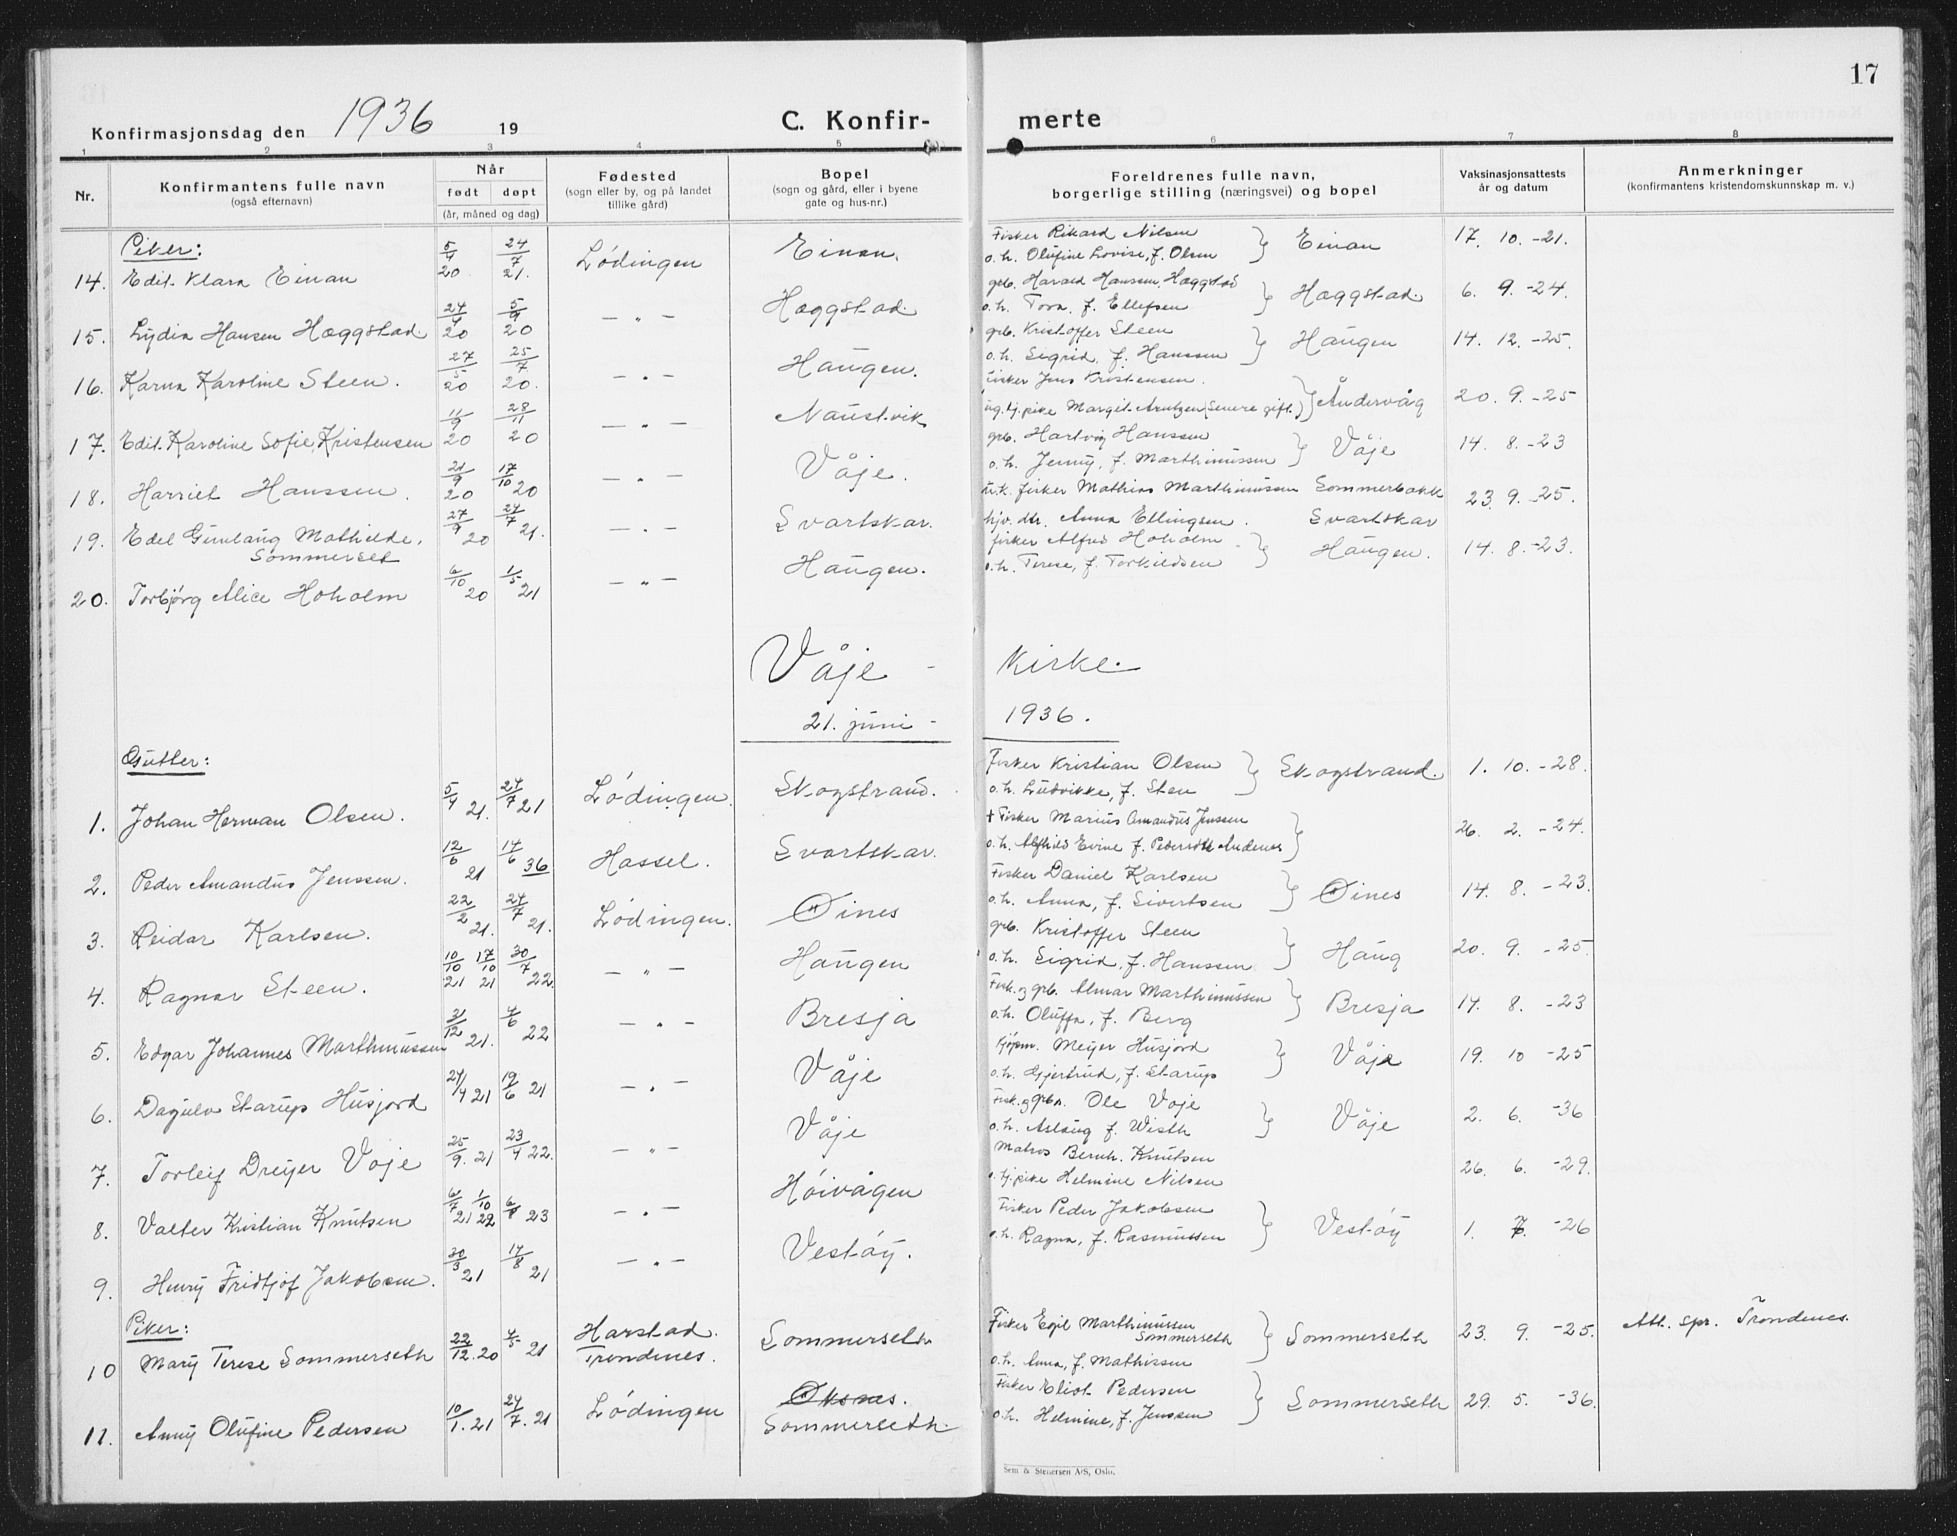 17
Konfirmasjonsdag den 1936 19
C. Konfir-
merte
1 2 3 4 5 6 7 8
Nr.
Konfirmantens fulle navn
(også efternavn)
Når
født døpt
(år, måned og dag)
Fødested
(sogn eller by, og på landet
tillike gård)
Bopel
(sogn og gård, eller i byene
gate og hus-nr.)
Foreldrenes fulle navn,
borgerlige stilling (næringsvei) og bopel
Vaksinasjonsattests
år og datum
Anmerkninger
(konfirmantens kristendomskunnskap m. v.)
Piker:
14. Edit Klara Einan 5/4 20. 24/7 21. Lødingen Einan. Fisker Rikard Nilsen
o.h. Olufine Lovise, f. Olsen } Einan 17. 10. -21.
15. Lydia Hansen Hæggstad 24/4 20 5/9 20 — " — Hæggstad. grb. Harald Hansen Hæggstad
o.h. Tora f. Ellefsen } Hæggstad 6. 9. -24.
16. Karna Karoline Steen. 27/5 20 25/7 20. — " — Haugen. grb. Kristoffer Steen
o.h. Sigrid, f. Hanssen } Haugen 14. 12. -25.
17. Edit Karoline Sofie Kristensen 11/9 20 28/11 20 — " — Naustvik Fisker Jens Kristensen.
ug. tj. pike Margit Arntzen (senere gift) } Åndervåg 20. 9. -25
18. Harriet Hanssen. 21/9 20 17/10 20 — " — Våje. grb. Hartvig Hanssen
o.h. Jenny, f. Marthinussen } Våje 14. 8. -23
19. Edel Gunlaug Mathilde, 27/9 20 24/7 21. — " — Svartskar. u.k. fisker Mathias Marthinussen Sommerbakk 23. 9. -25.
Sommerset hjv. dtr. Anna Ellingsen. Svartskar
20. Torbjørg Alice Hoholm 6/10 20 1/5 21 — " — Haugen. fisker Alfred Hoholm
o.h. Terese, f. Torkildsen } Haugen. 14. 8. -23.
Våje - Kirke.
21. juni - 1936.
Gutter:
1. Johan Herman Olsen. 5/4 21. 24/7 21 Lødingen. Skogstrand. Fisker Kristian Olsen
o.h. Ludvikke, f. Sten } Skogstrand. 1. 10. -28.
2. Peder Amandus Jenssen. 12/6 21 14/6 36 Hassel. Svartskar. + Fisker Marius Amandus Jenssen
o.h. Alfhild Evine f. Andenes } 26. 2. -24.
3. Reidar Karlsen. 22/2 21. 24/7 21. Lødingen. Øines Fisker Daniel Karlsen
o.h. Anna, f. Sivertsen } Øines 14. 8. -23.
4. Ragnar Steen. 10/10 21 17/10 21 30/7 22. — " — Haugen grb. Kristoffer Steen
o.h. Sigrid, f. Hanssen } Haug 20. 9. -25.
5. Edgar Johannes Marthinussen 31/12 21. 4/6 22 — " — Bresja Fisk. og grb. Almar Marthinussen
o.h. Oluffa, f. Berg } Bresja 14. 8. -23
6. Dagulv Starup Husjord 24/4 21 19/6 21 — " — Våje Kjøpm. Meyer Husjord
o.h. Gjertrud, f. Starup } Våje 19. 10 -25
7. Torleif Dreyer Våje 25/9. 21 23/4 22. — " — Våje Fisk. og grbr. Ole Våje
o.h. Aslaug f. Wisth } Våje 2. 6. -36
8. Valter Kristian Knutsen 6/7 21 1/10 22 6/8 23 — " — Høivågen Matros Bernh. Knutsen
tj. pike Helmine Nilsen 26. 6. -29.
9. Henry Fridtjof Jakobsen. 30/3 21 14/8 21 — " — Vestøy. Fisker Peder Jakobsen
o.h. Ragna, f. Rasmussen } Vestøy 1. 7. -26
Piker:
10 Mary Terese Sommerseth 22/12. 20 4/5 21 Harstad. Sommerseth Fisker Egil Marthinussen
Trondenes. Sommerseth } Sommerseth 23. 9. -25. Att. spr. Trondenes.
o.h. Anna, f. Mathissen
11. Anny Olufine Pedersen 10/1. 21 24/7. 21 Lødingen Øksnes. Fisker Eliot Pedersen
Sommerseth. o.h. Helmine, f. Jenssen } Sommerseth 29. 5. -36.
Sem & Stenersen A/S, Oslo.